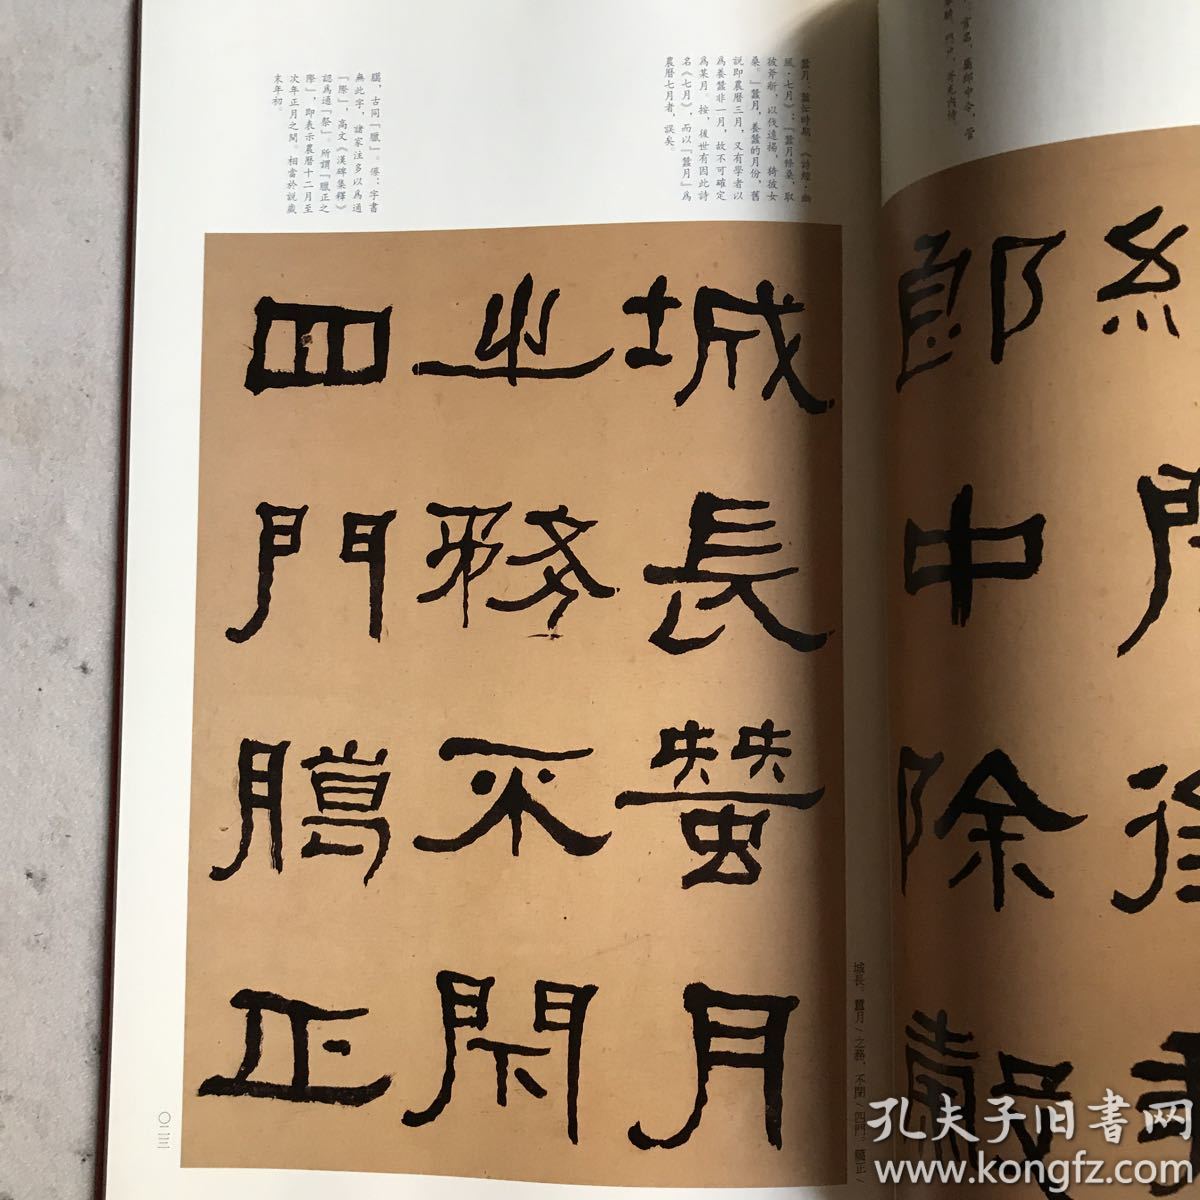 蠶月：蠶忙時期。《詩經·豳
風·七月》：『蠶月條桑，取
彼斧斨，以伐遠揚，猗彼女
桑。』蠶月，養蠶的月份，舊
説即農曆三月，又有學者以
爲養蠶非一月，故不可確定
爲某月。按，後世有因此詩
名《七月》，而以『蠶月』爲
農曆七月者，誤矣。
臈，古同『臘』。㣲：字書
無此字，諸家注多以爲通
『際』，高文《漢碑集釋》
認爲通『祭』。所謂『臘正之
際』，即表示農曆十二月至
次年正月之間。相當於説歲
末年初。
郎中除
城長蠶月
之務不閉
四門臈正
城長。蠶月/之務，不閉/四門。臈正/
〇二三
孔夫子旧書网
www.kongfz.com